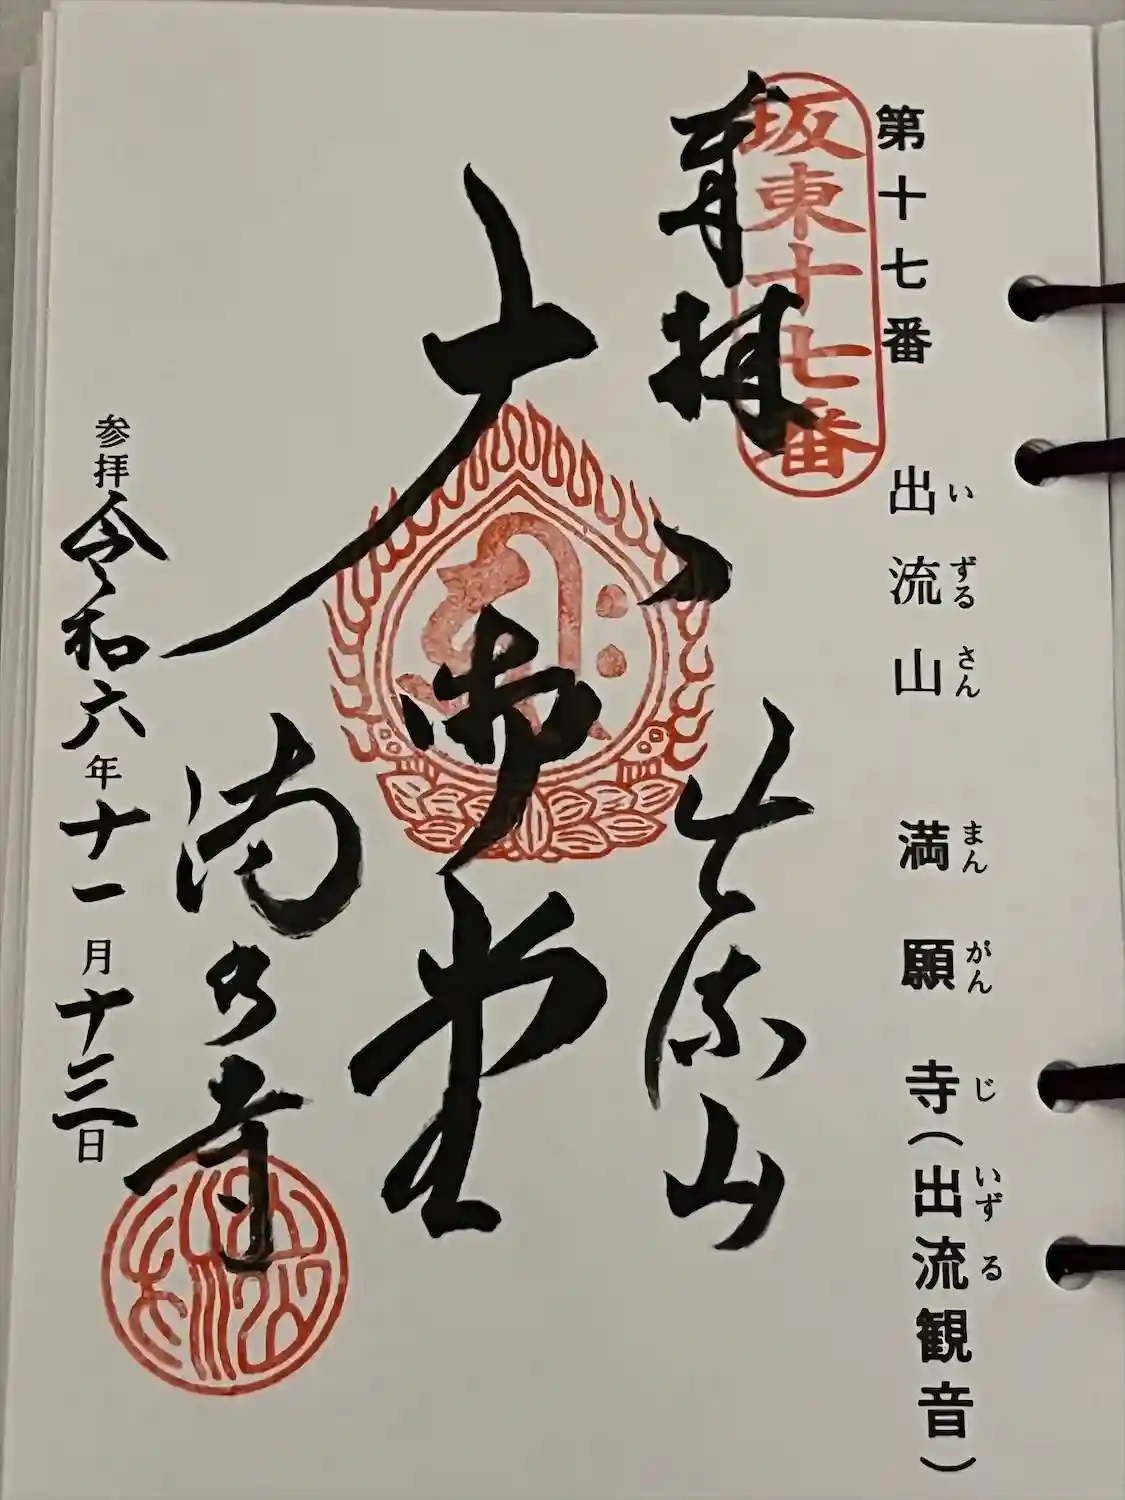 第十七番 出流山 満願寺(出流観音)
いずるさん まんがんじ いずる
坂東十七番
奉拝
出流山
大御堂
満願寺
参拝令和六年十一月十三日